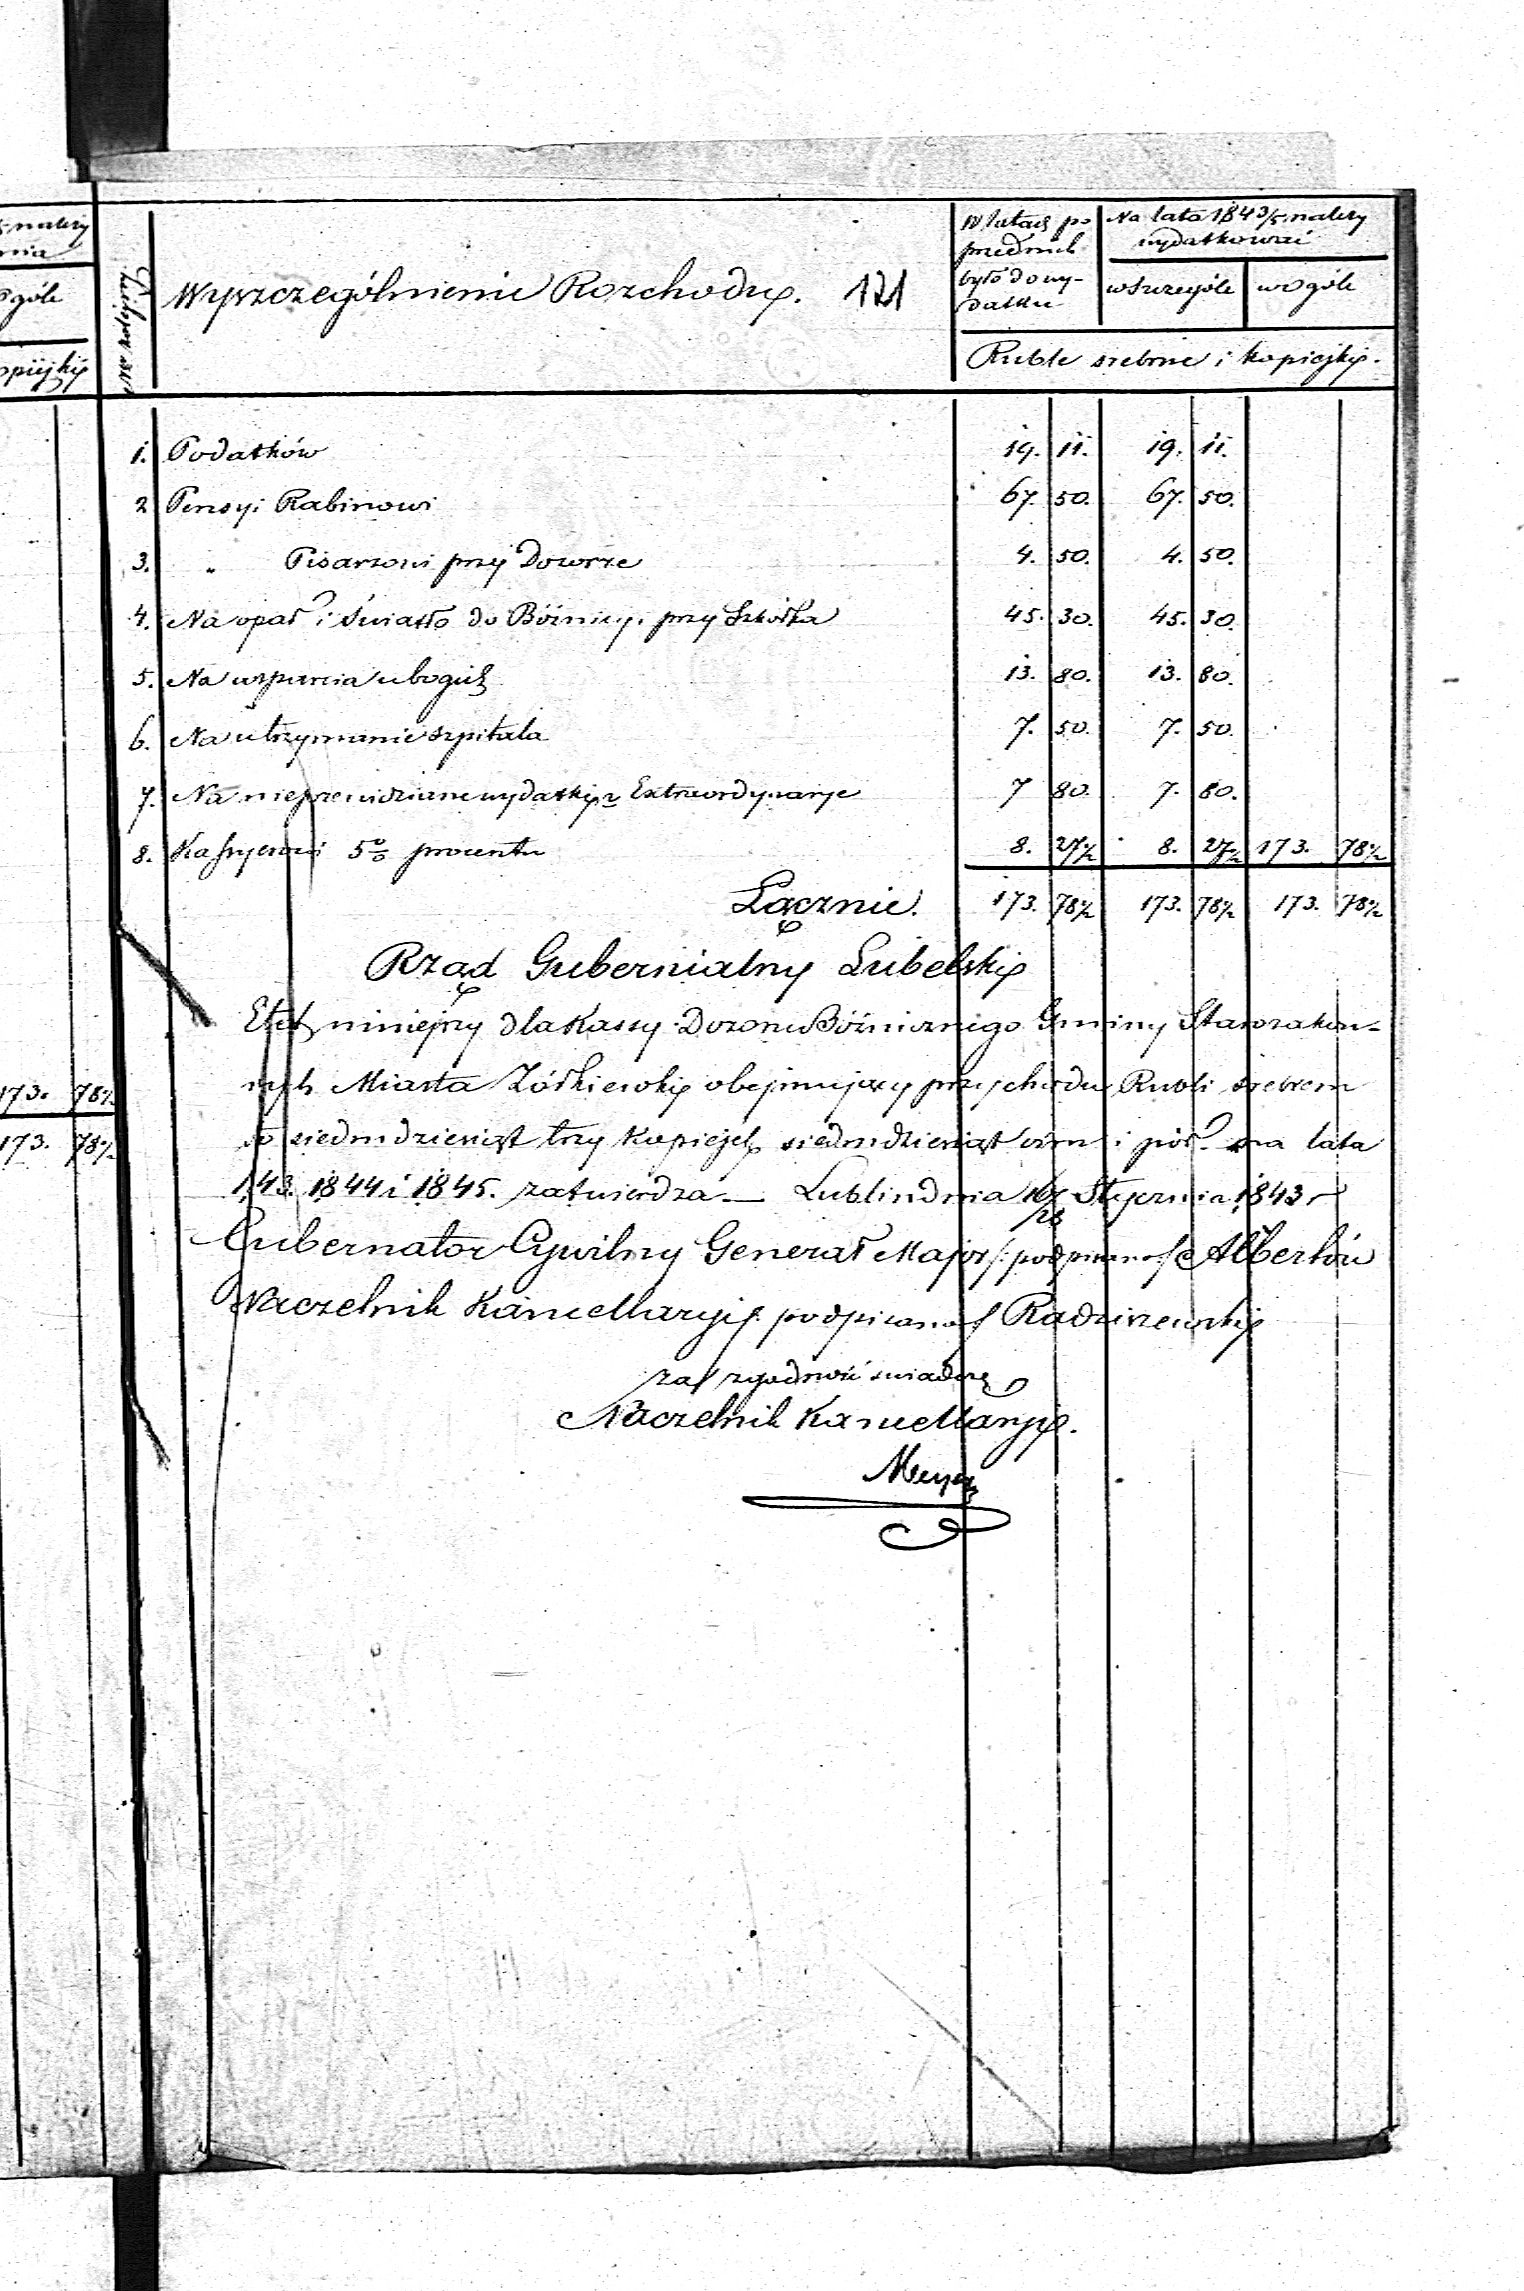 5 należy
nia
ogóle
opiejki
173. 78½
173. 78½
Liczba
Wyszczególnienie Rozchodu. 121
W latach po
przednich
było do wy-
datku
Na lata 1843/5 należy
wydatkować
wszczególe wogóle
Ruble srebrne i kopiejki.
1. Podatków 19. 11. 19. 11.
2 Pensyi Rabinowi 67. 50. 67. 50.
3. " Pisarzowi przy Dozorze 4. 50. 4. 50.
4. Na opał i światło do Bóźnicy i przy Szkółka 45. 30. 45. 30.
5. Na wsparcia ubogich 13. 80. 13. 80.
6. Na utrzymanie szpitala 7. 50. 7. 50.
7. Na nieprzewidziane wydatki Extraordynarye 7 80. 7. 80.
8. Kassyerowi 5% procentu 8. 27½ 8. 27½ 173. 78½
Łącznie. 173. 78½ 173. 78½ 173. 78½
Rząd Gubernialny Lubelski
Etat niniejszy dla Kassy Dozoru Bóźniczego Gminy Starozakon-
nych Miasta Żółkiewki obejmujący przychodu Rubli srebrem
sto siedmdziesiąt trzy Kopiejek siedmdziesiąt ośm i pół na lata
1843. 1844 i 1845. zatwierdza — Lublin dnia 16/28 Stycznia 1843 r
Gubernator Cywilny Generał Major /: podpisano :/ Albertów
Naczelnik Kancellaryi /: podpisano :/ Radziszewski
za zgodność świadczę
Naczelnik Kancellaryi.
Meyer